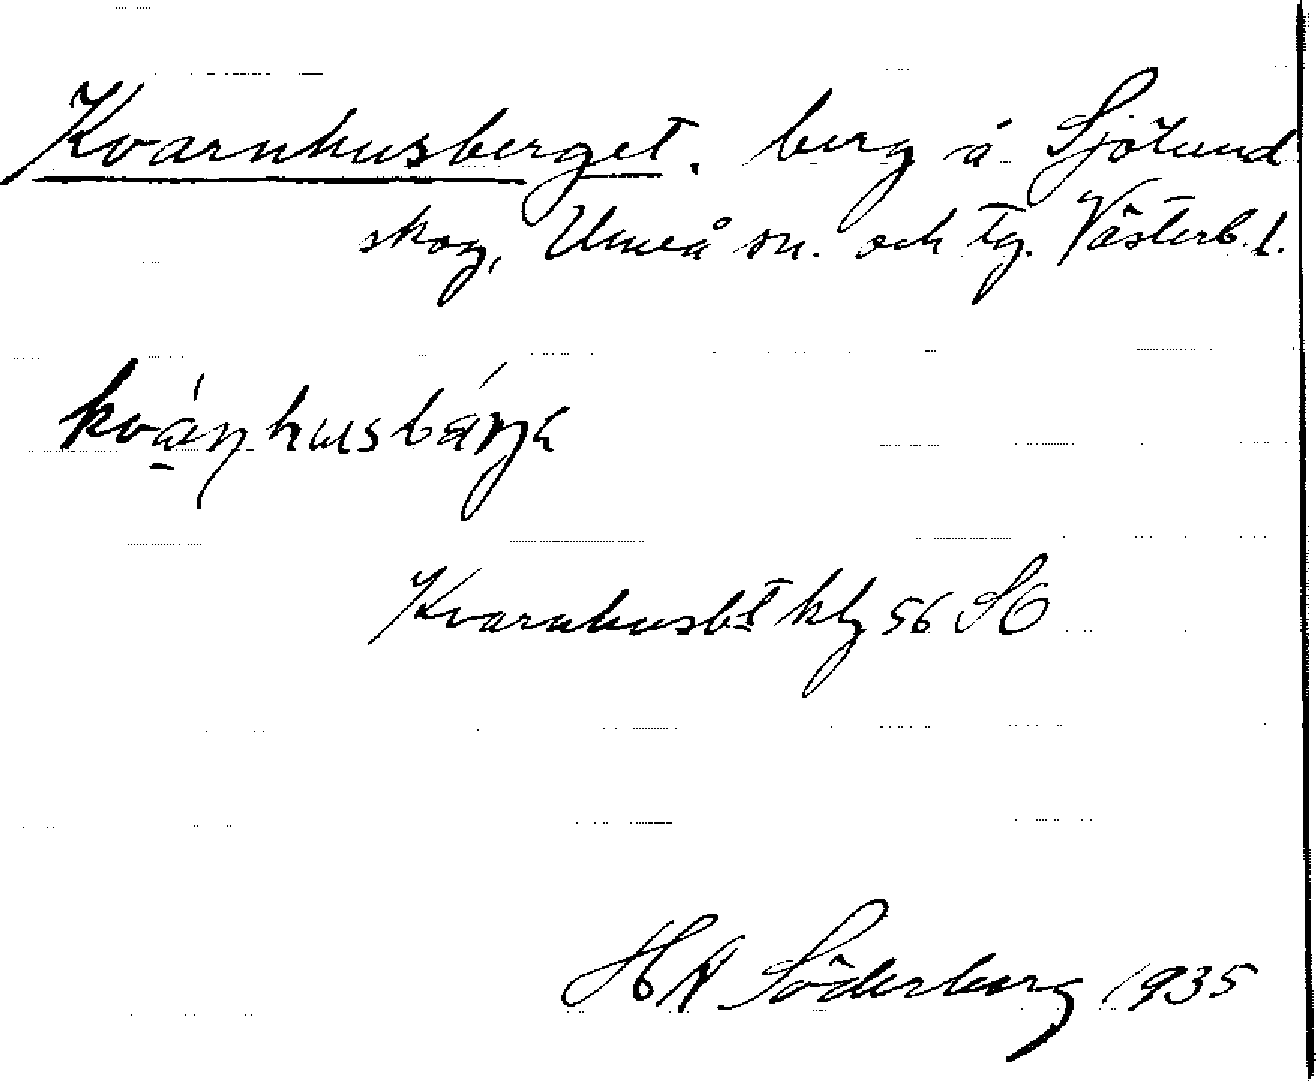 Kvarnhusberget. berg å Sjölund
skog, Umeå sn. och tg. Västerb. l.
Kvarnhusbt klg 56 SO
HA Söderberg 1935